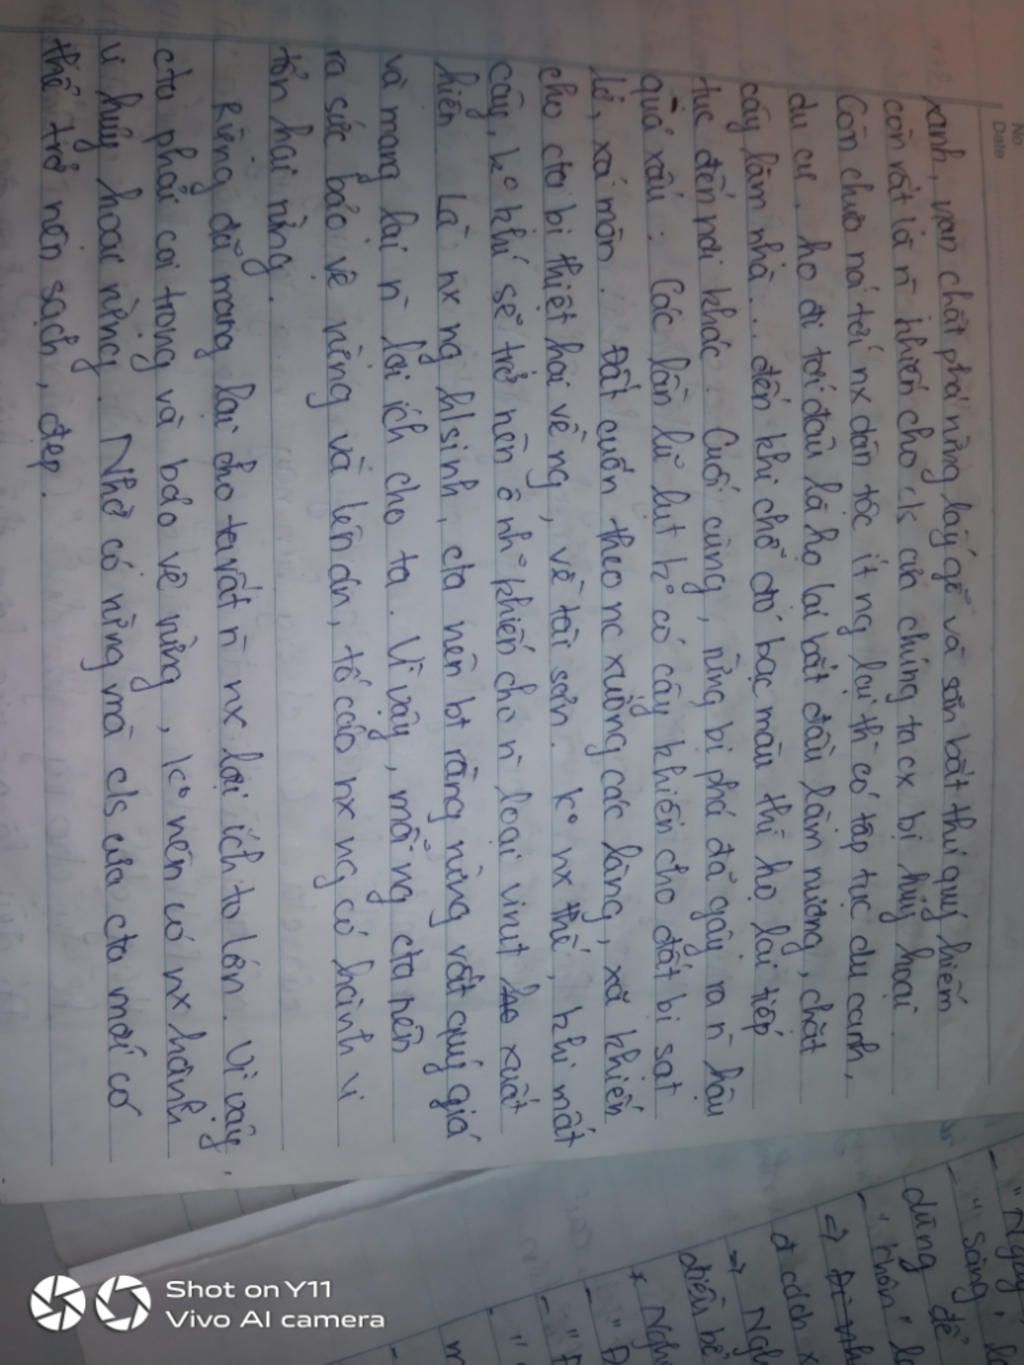 No.
Date
xanh, vạn chặt phá rừng lấy gỗ và săn bắt thú quý hiếm
còn rất là n̄ khiến cho c/s của chúng ta cx bị hủy hoại.
Còn chưa nói tới nx dân tộc ít ng lại thì có tập tục du canh,
du cư, họ đi tới đâu là họ lại bắt đầu làm nương, chặt
cây làm nhà... đến khi chỗ đó bạc màu thì họ lại tiếp
tục đến nơi khác. Cuối cùng, rừng bị phá đã gây ra n̄ hậu
quả xấu: Các lần lũ lụt k° có cây khiến cho đất bị sạt
lở, xói mòn. Đất cuốn theo nc xuống các làng, xã khiến
cho cta bị thiệt hại về ng, về tài sản. k° nx thế, khi mất
cây, k° khí sẽ trở nên ô nh° khiến cho n̄ loại virut xuất
hiện. Là nx ng h/sinh, cta nên bt rằng rừng rất quý giá
và mang lại n̄ lợi ích cho ta. Vì vậy, mỗi ng cta nên
ra sức bảo vệ rừng và lên án, tố cáo nx ng có hành vi
tổn hại rừng.
Rừng đã mang lại cho ta rất n̄ nx lợi ích to lớn. Vì vậy,
cta phải coi trọng và bảo vệ rừng, k° nên có nx hành
vi hủy hoại rừng. Nhờ có rừng mà c/s của cta mới có
thể trở nên sạch, đẹp.
"Ngày
"sáng,
dùng để
"khôn"
đ cách
→ Nghĩ
điển bể
* Nghĩ
Shot on Y11
Vivo AI camera